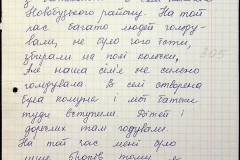 Новобузького району. На той
час багато людей голоду-
вали, не було чого їсти,
збирали на полі колоски,
Але наша сім'я не сильно
голодувала В селі створена
була комуна і мої батьки
туди вступили. Дітей і
дорослих там годували.
На той час мені було